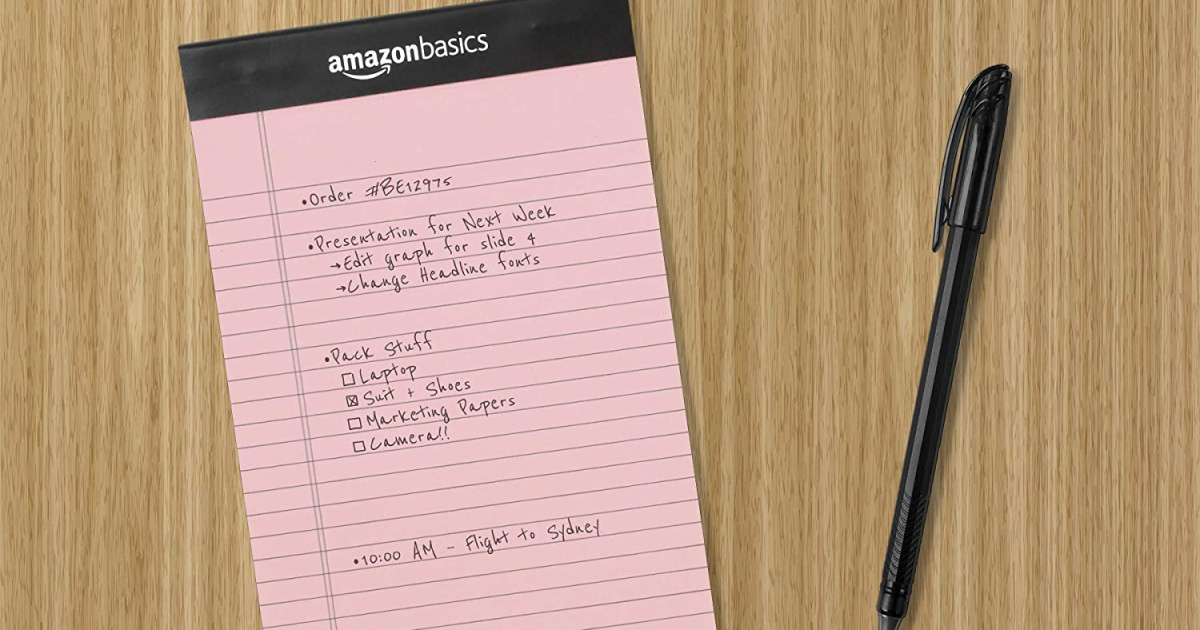 amazonbasics
•Order #BE12975
•Presentation for Next Week
→Edit graph for slide 4
→Change Headline fonts
•Pack Stuff
☐ Laptop
☒ Suit + Shoes
☐ Marketing Papers
☐ Camera!!
•10:00 AM - Flight to Sydney